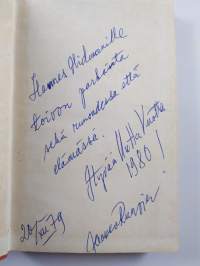 Hannes Widmarille
toivon parhainta
sekä runoudessa että
elämässä.
Hyvää Uutta Vuotta
1980!
20/XII 79